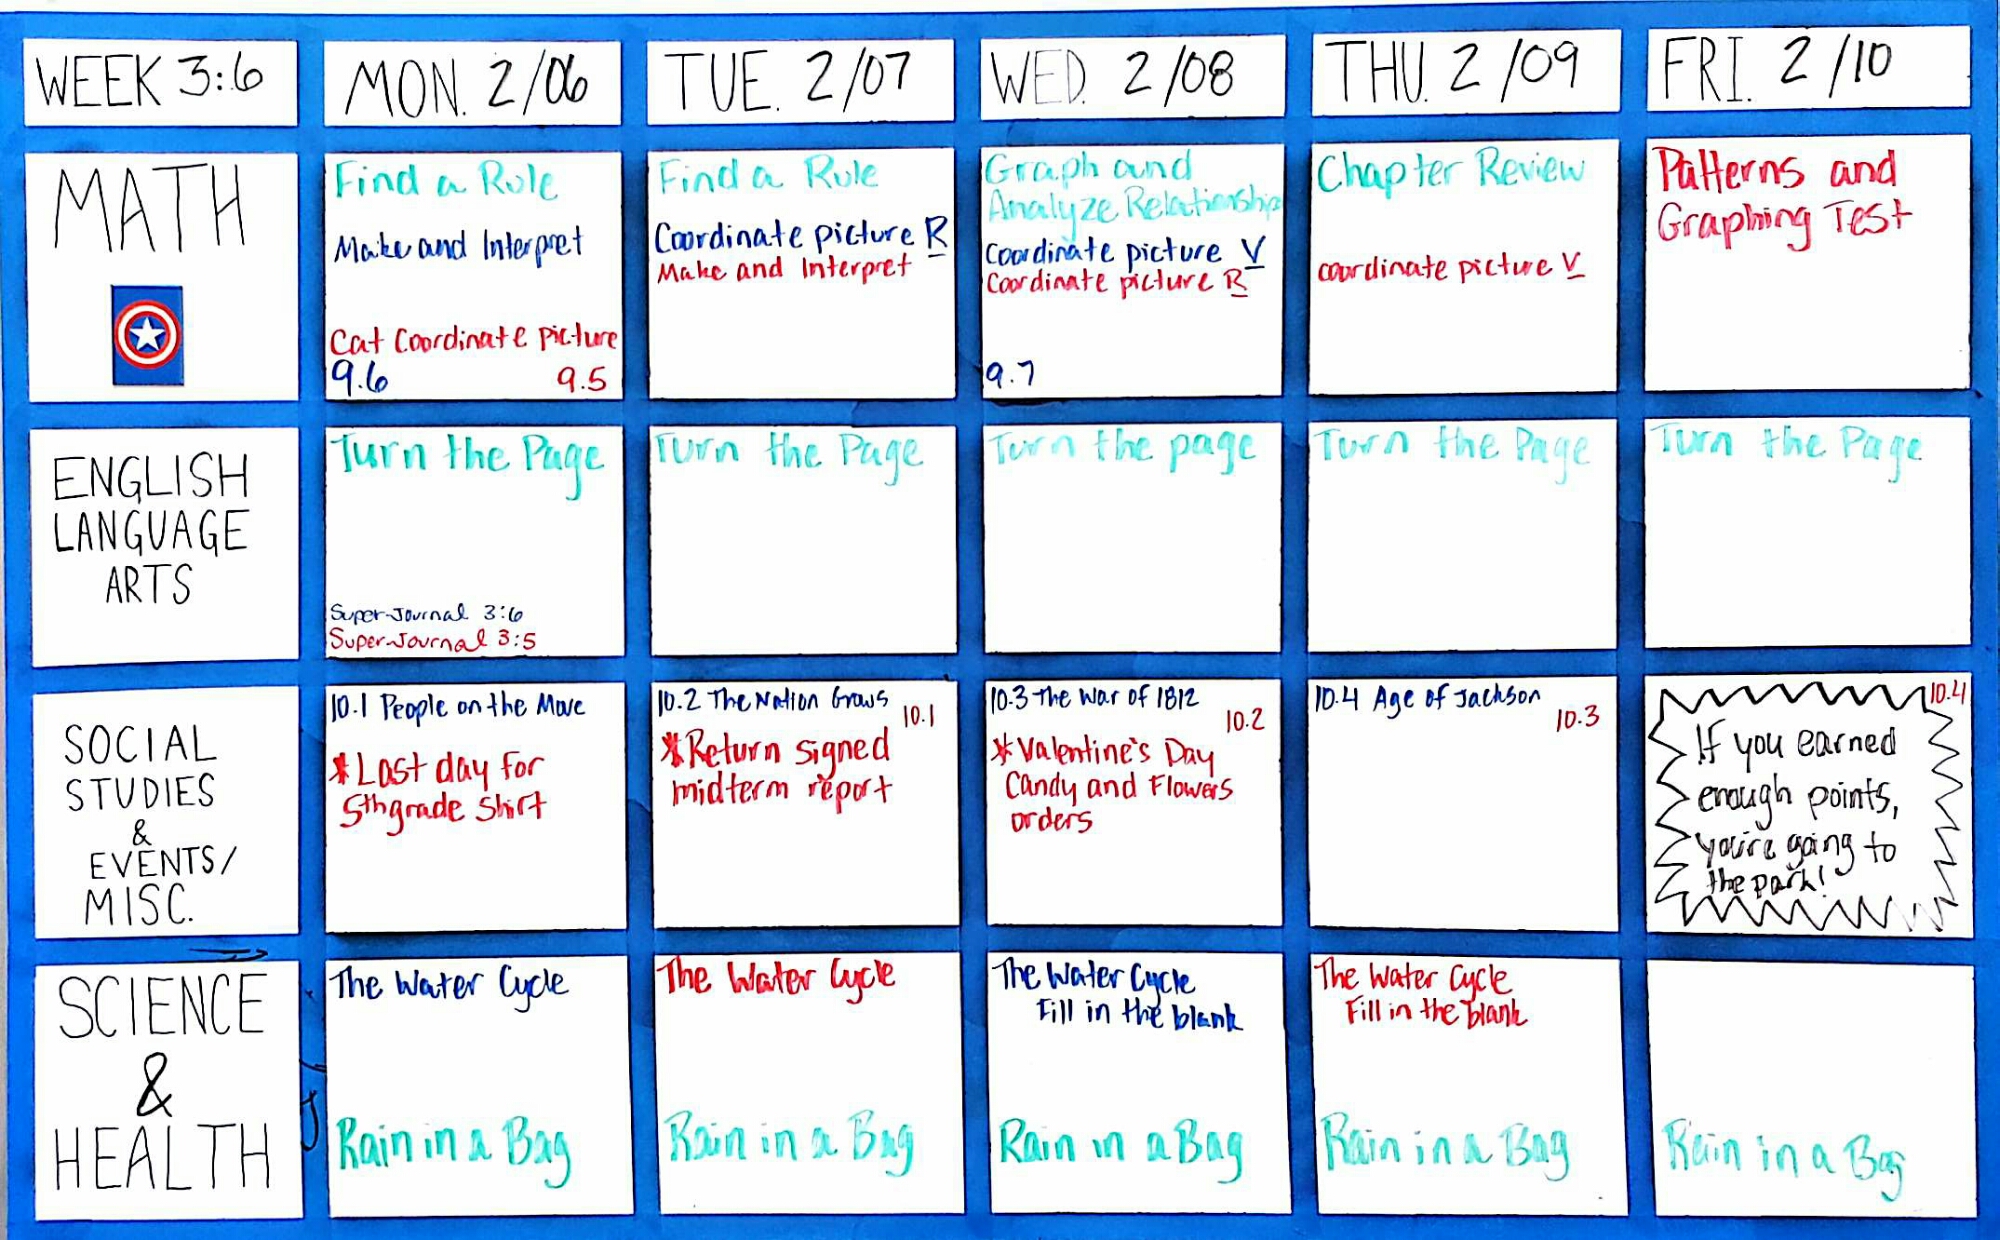 WEEK 3:6
MON. 2/06
TUE. 2/07
WED. 2/08
THU. 2/09
FRI. 2/10
MATH
Find a Rule
Make and Interpret
Cat Coordinate picture
9.6 9.5
Find a Rule
Coordinate picture R
Make and Interpret
Graph and
Analyze Relationship
Coordinate picture V
Coordinate picture R
9.7
Chapter Review
coordinate picture V
Patterns and
Graphing Test
ENGLISH
LANGUAGE
ARTS
Turn the Page
Super-Journal 3:6
Super-Journal 3:5
Turn the Page
Turn the page
Turn the Page
Turn the Page
SOCIAL
STUDIES
&
EVENTS/
MISC.
10.1 People on the Move
*Last day for
5th grade Shirt
10.2 The Nation Grows
10.1
*Return signed
midterm report
10.3 The War of 1812
10.2
*Valentine's Day
Candy and Flowers
orders
10.4 Age of Jackson
10.3
10.4
If you earned
enough points,
you're going to
the park!
SCIENCE
&
HEALTH
The Water Cycle
Rain in a Bag
The Water Cycle
Rain in a Bag
The Water Cycle
Fill in the blank
Rain in a Bag
The Water Cycle
Fill in the blank
Rain in a Bag
Rain in a Bag